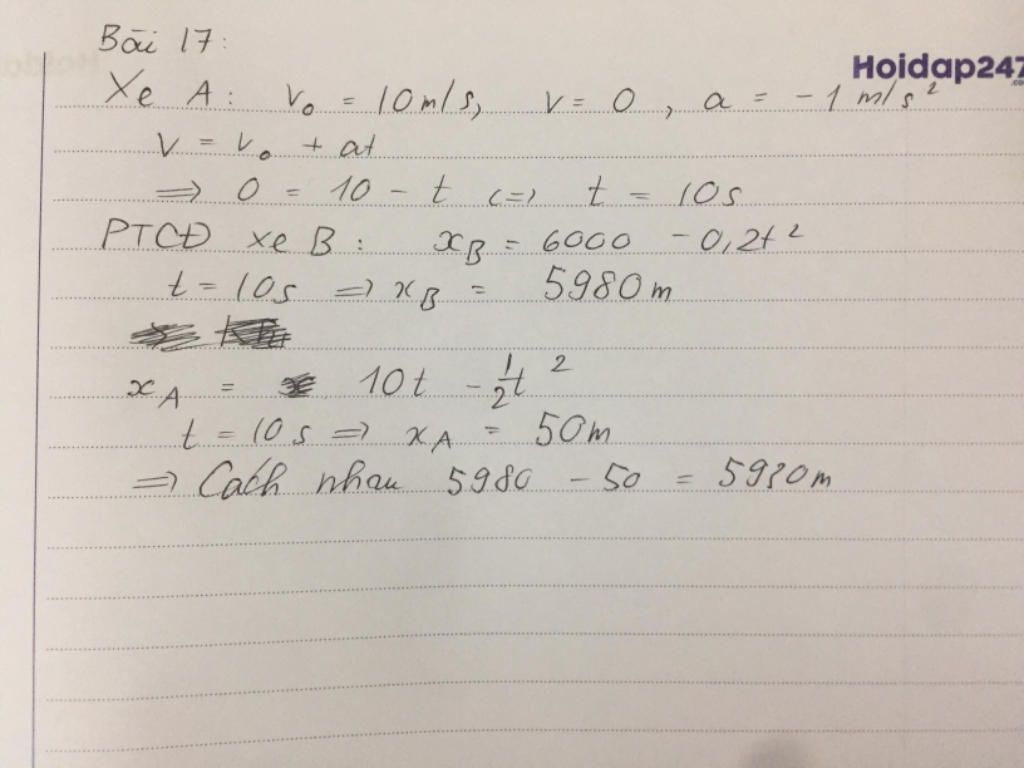 Bài 17:
Hoidap247
.com
Xe A: v₀ = 10 m/s, v = 0, a = -1 m/s²
v = v₀ + at
=> 0 = 10 - t <=> t = 10s
PTCĐ xe B: x_B = 6000 - 0,2t²
t = 10s => x_B = 5980m
x_A = 10t - 1/2 t²
t = 10s => x_A = 50m
=> Cách nhau 5980 - 50 = 5930m